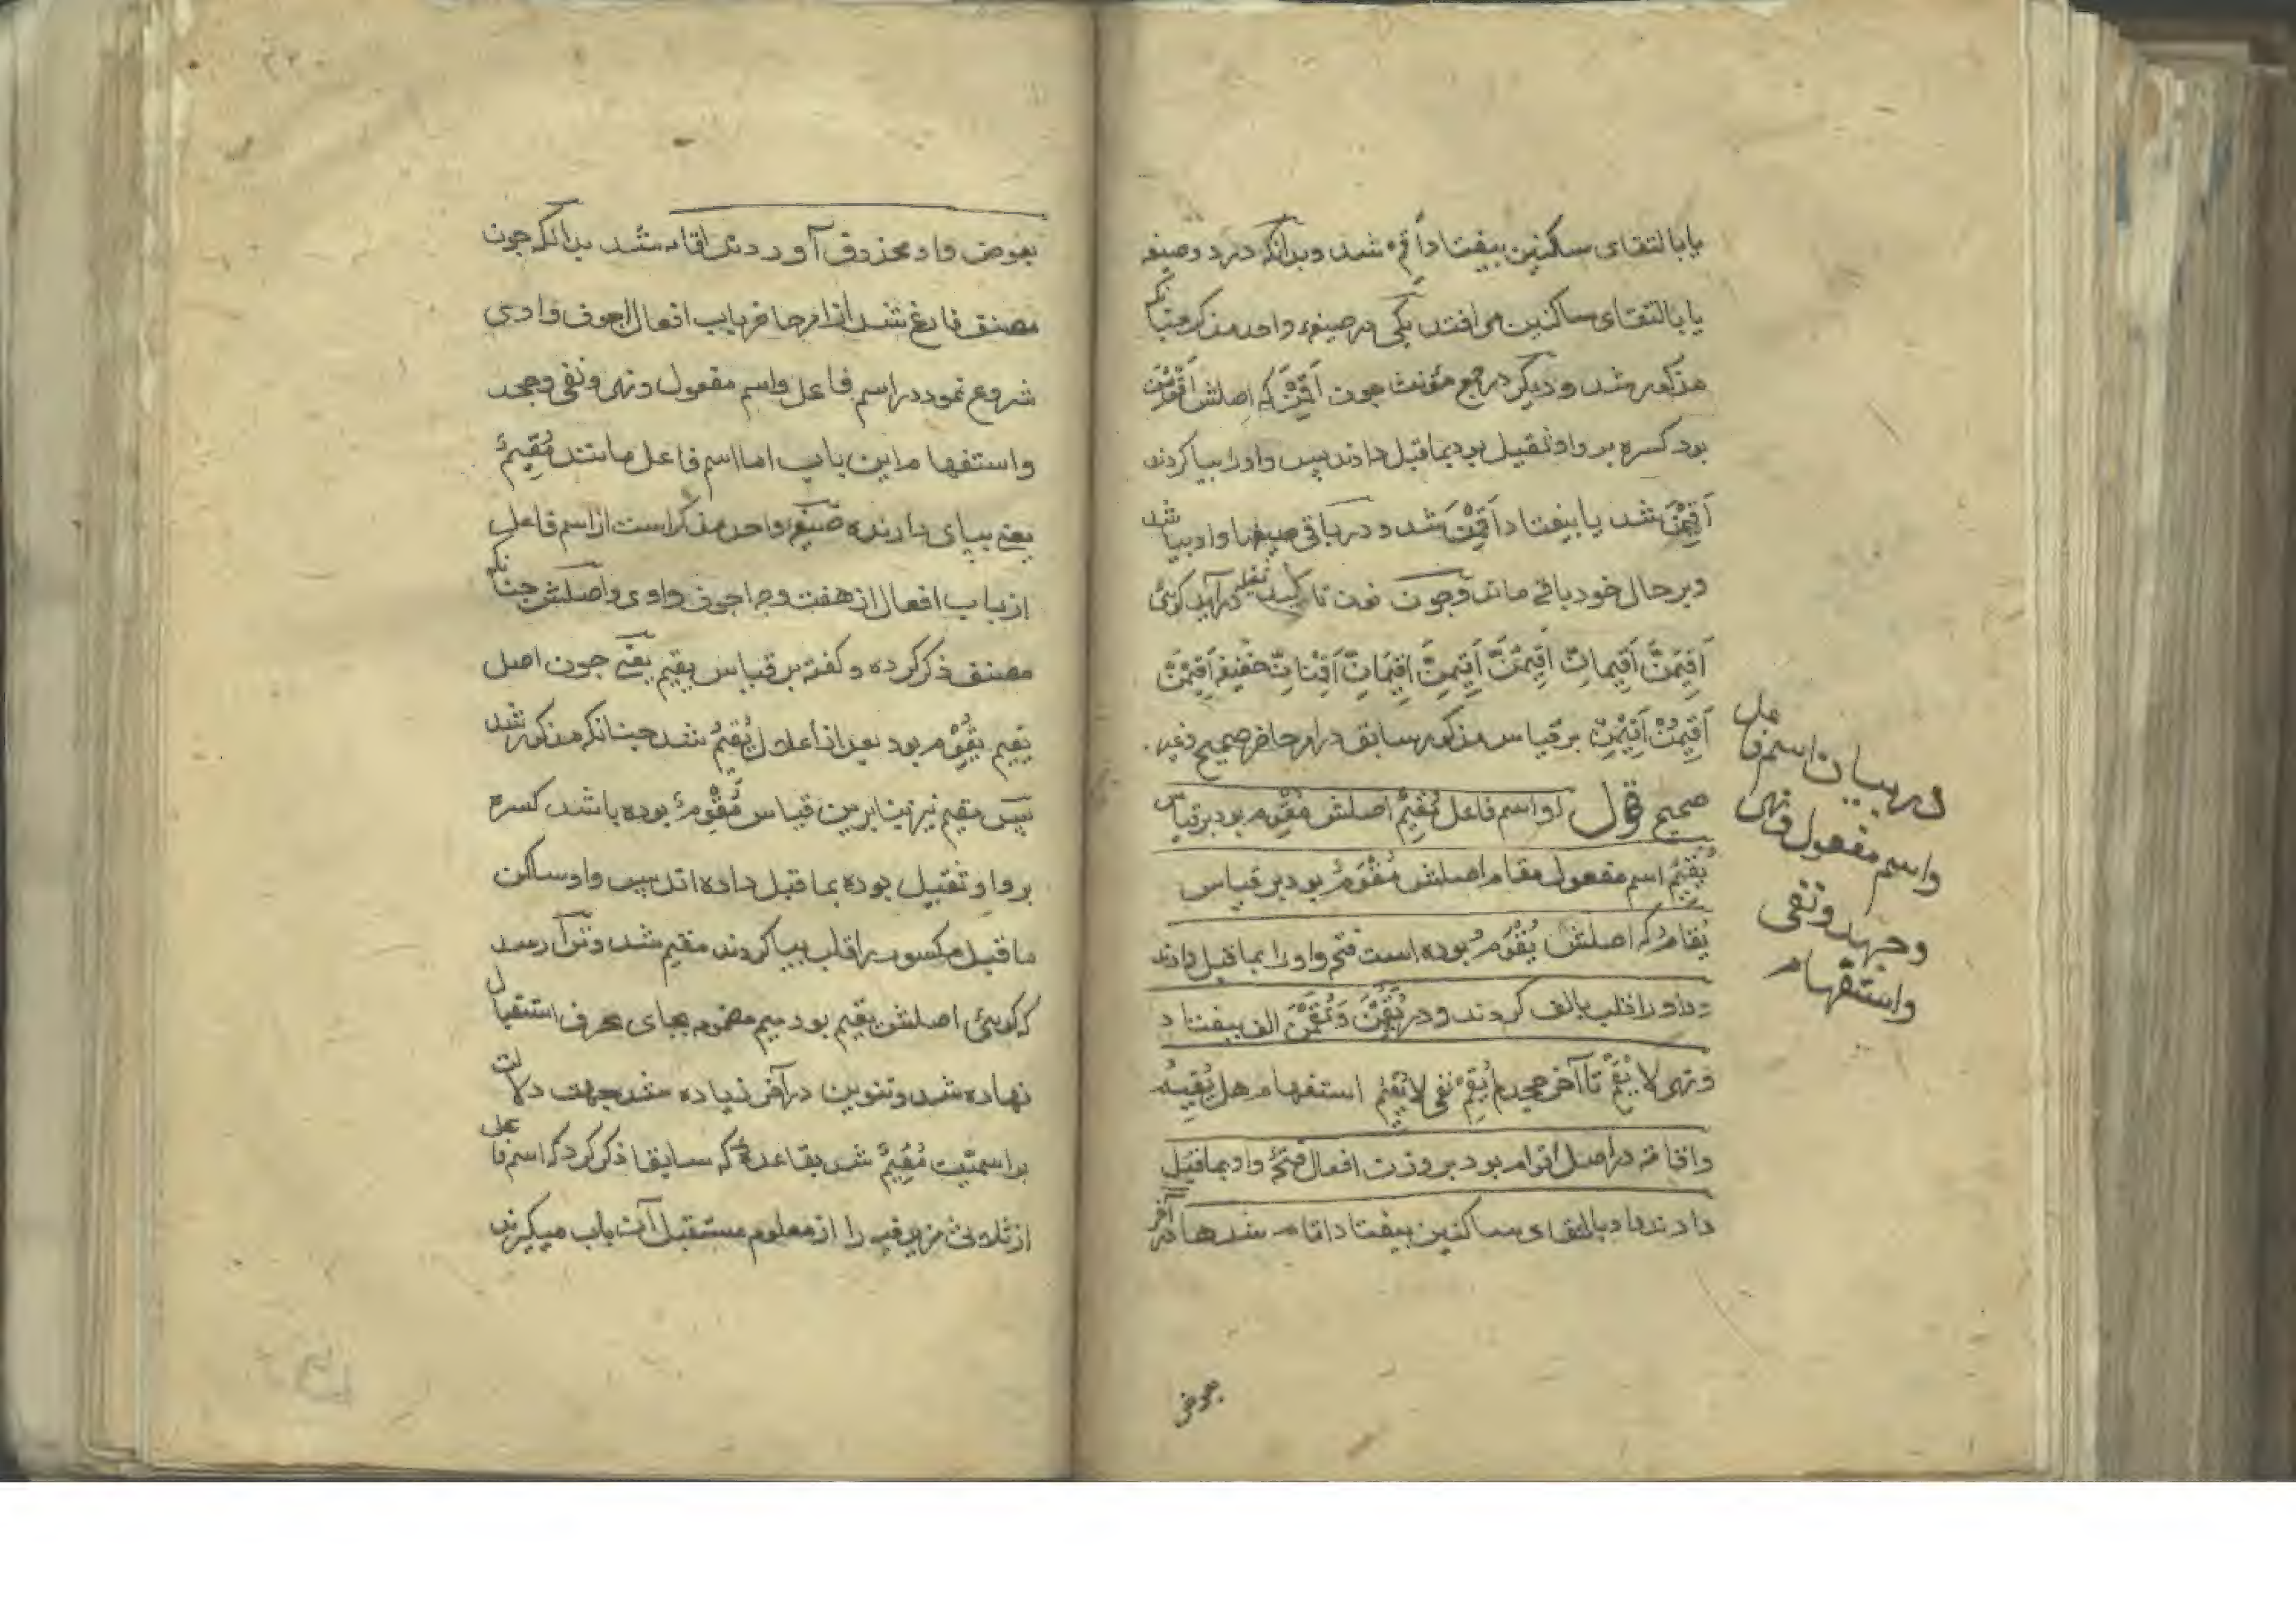 یا بالتقای ساکنین بیفتاد أَقِمْ شد و بدانکه در دو صیغه
یا بالتقای ساکنین می افتد یکی در صیغهٔ واحد مذکر چنانکه
مذکور شد و دیگر در جمع مؤنث چون أَقِمْنَ که اصلش أَقْوِمْنَ
بود کسره بر واو ثقیل بود بماقبل دادند پس واو را بیا کردند
أَقِیْمْنَ شد یا بیفتاد أَقِمْنَ شد و در باقی صیغها واو بیا شد
و بر حال خود باقی ماند و چون نون تاکید ثقیله در آید کوئی
أَقِیمَنَّ أَقِیمانِّ أَقِیمُنَّ أَقِیمِنَّ أَقِیمَانِّ أَقِمْنانِّ خفیفه أَقِیمَنْ
أَقِیمُنْ أَقِیمِنْ بر قیاس مذکور سابق در امر حاضر صحیح و غیر
صحیح قوله و اسم فاعل مُقِیمٌ اصلش مُقْوِمٌ بود بر قیاس
یُقِیمُ اسم مفعول مقام اصلش مُقْوَمٌ بود بر قیاس
یُقامُ که اصلش یُقْوَمُ بوده است فتح واو را بماقبل دادند
و واو را قلب بالف کردند و در یُقَمْنَ وَ تُقَمْنَ الف بیفتاد
و نهی لا یُقِمْ تا آخر جحد لم یُقِمْ نفی لا یُقِیمُ استفهام هل یُقِیمُ
و اقامة در اصل اقوام بود بر وزن افعال فتحهٔ واو بماقبل
دادند واو بالتقای ساکنین بیفتاد اقام شد ها در آخر
بعوض
در بیان اسم فاعل
و اسم مفعول و نهی
و جهد و نفی
و استفهام
بعوض واو محذوف آوردند اقامه شد بدانکه چون
مصنف فارغ شد از امر حاضر باب افعال اجوف واوی
شروع نمود در اسم فاعل و اسم مفعول و نهی و نفی و جحد
و استفهام از این باب اما اسم فاعل مانند مُقِیمٌ
یعنی بپای دارنده صیغهٔ واحد مذکر است از اسم فاعل
از باب افعال از هفت وجه اجوف واوی و اصلش چنانکه
مصنف ذکر کرده و کفته بر قیاس یقیم یعنی چون اصل
یقیم یُقْوِمُ بود بعد از اعلال یُقِیمُ شد چنانکه مذکور شد
پس مقیم نیز بنا برین قیاس مُقْوِمٌ بوده باشد کسره
بر واو ثقیل بوده بماقبل داده اند پس واو ساکن
ماقبل مکسور را قلب بیا کردند مقیم شد و ترا رسد
که کوئی اصلش یقیم بود میم مضمومه بجای حرف استقبال
نهاده شد و تنوین در آخر زیاده شد بجهت دلالت
بر اسمیّت مُقِیمٌ شد بقاعدهٔ که سابقا ذکر کرد که اسم فاعل
از ثلاثی مزید فیه را از معلوم مستقبل آن باب میکیرند